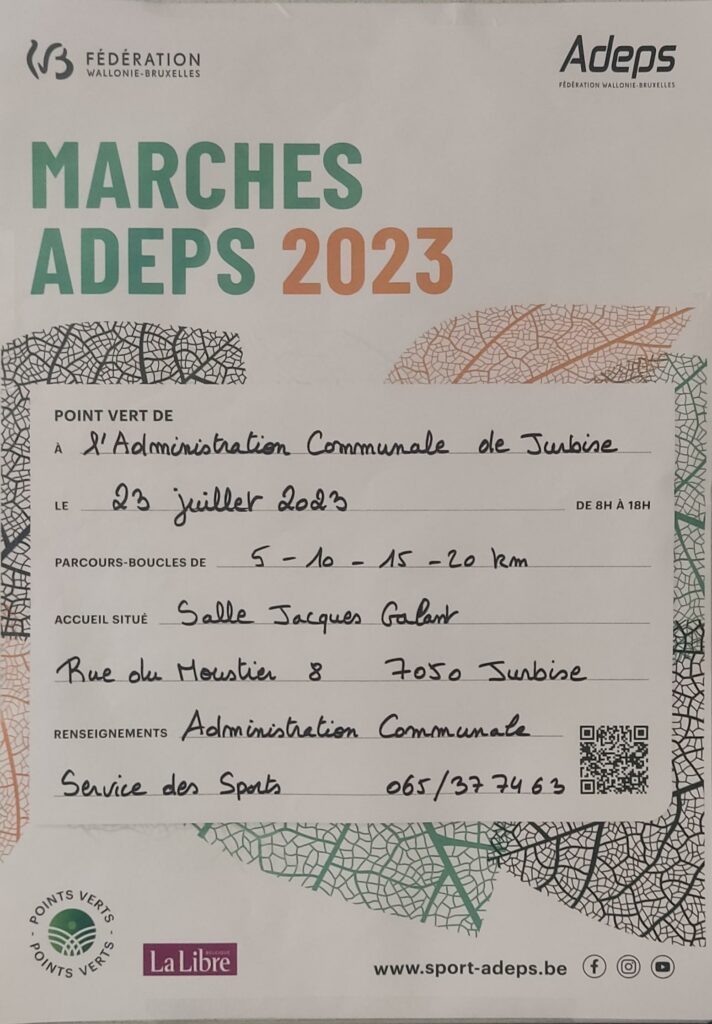 FÉDÉRATION
WALLONIE-BRUXELLES
Adeps
FÉDÉRATION WALLONIE-BRUXELLES
MARCHES
ADEPS 2023
POINT VERT DE
À l'Administration Communale de Jurbise
LE 23 juillet 2023 DE 8H À 18H
PARCOURS-BOUCLES DE 5 - 10 - 15 - 20 km
ACCUEIL SITUÉ Salle Jacques Galant
Rue du Moustier 8 7050 Jurbise
RENSEIGNEMENTS Administration Communale
Service des Sports 065/37 74 63
- POINTS VERTS -
POINTS VERTS
BELGIQUE
La Libre
www.sport-adeps.be